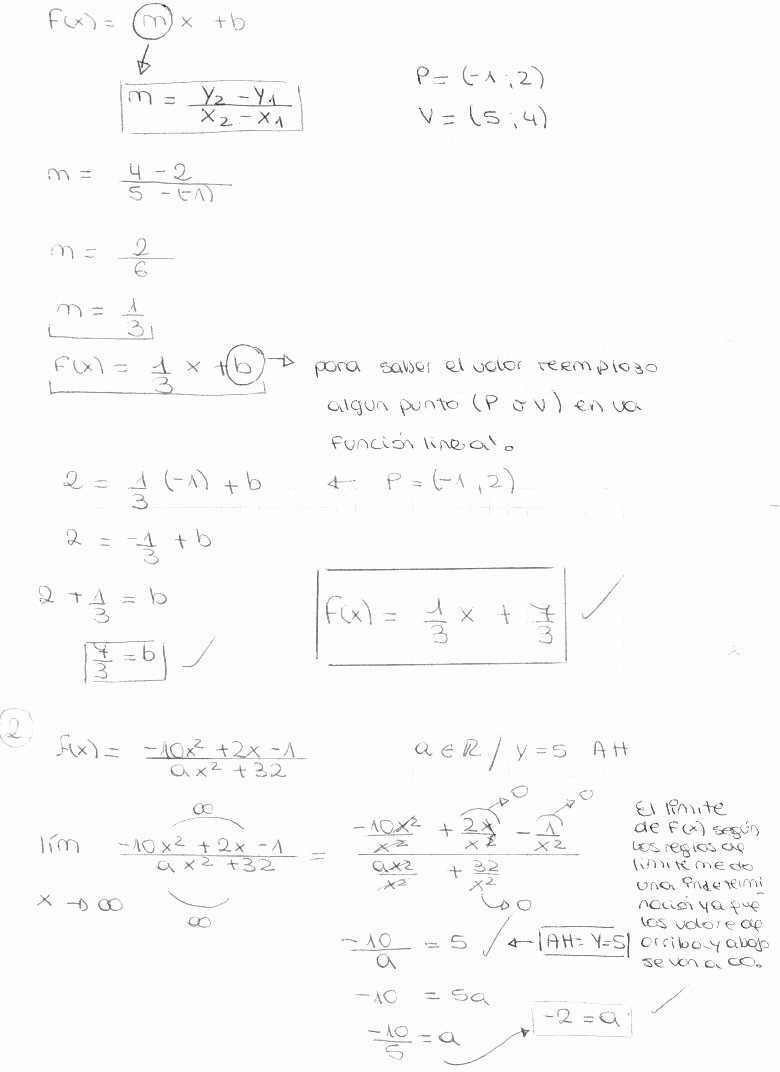 F(x) = m x + b
m = y₂ - y₁ / x₂ - x₁
P = (-1 ; 2)
V = (5 ; 4)
m = 4 - 2 / 5 - (-1)
m = 2/6
m = 1/3
F(x) = 1/3 x + b → para saber el valor reemplazo
algun punto (P o V) en la
Función lineal.
2 = 1/3 (-1) + b ← P = (-1, 2)
2 = -1/3 + b
2 + 1/3 = b
7/3 = b ✓
F(x) = 1/3 x + 7/3 ✓
2
f(x) = -10x² + 2x - 1 / ax² + 32
a ∈ ℝ / y = 5 AH
lím x → ∞ -10x² + 2x - 1 / ax² + 32 = -10x²/x² + 2x/x² - 1/x² / ax²/x² + 32/x²
∞
∞
→ 0
→ 0
→ 0
El límite
de F(x) según
las reglas de
límite me da
una indetermi
nación ya que
los valore de
arriba y abajo
se van a ∞.
-10/a = 5 ✓ ← AH = Y = 5
-10 = 5a
-10/5 = a → -2 = a ✓